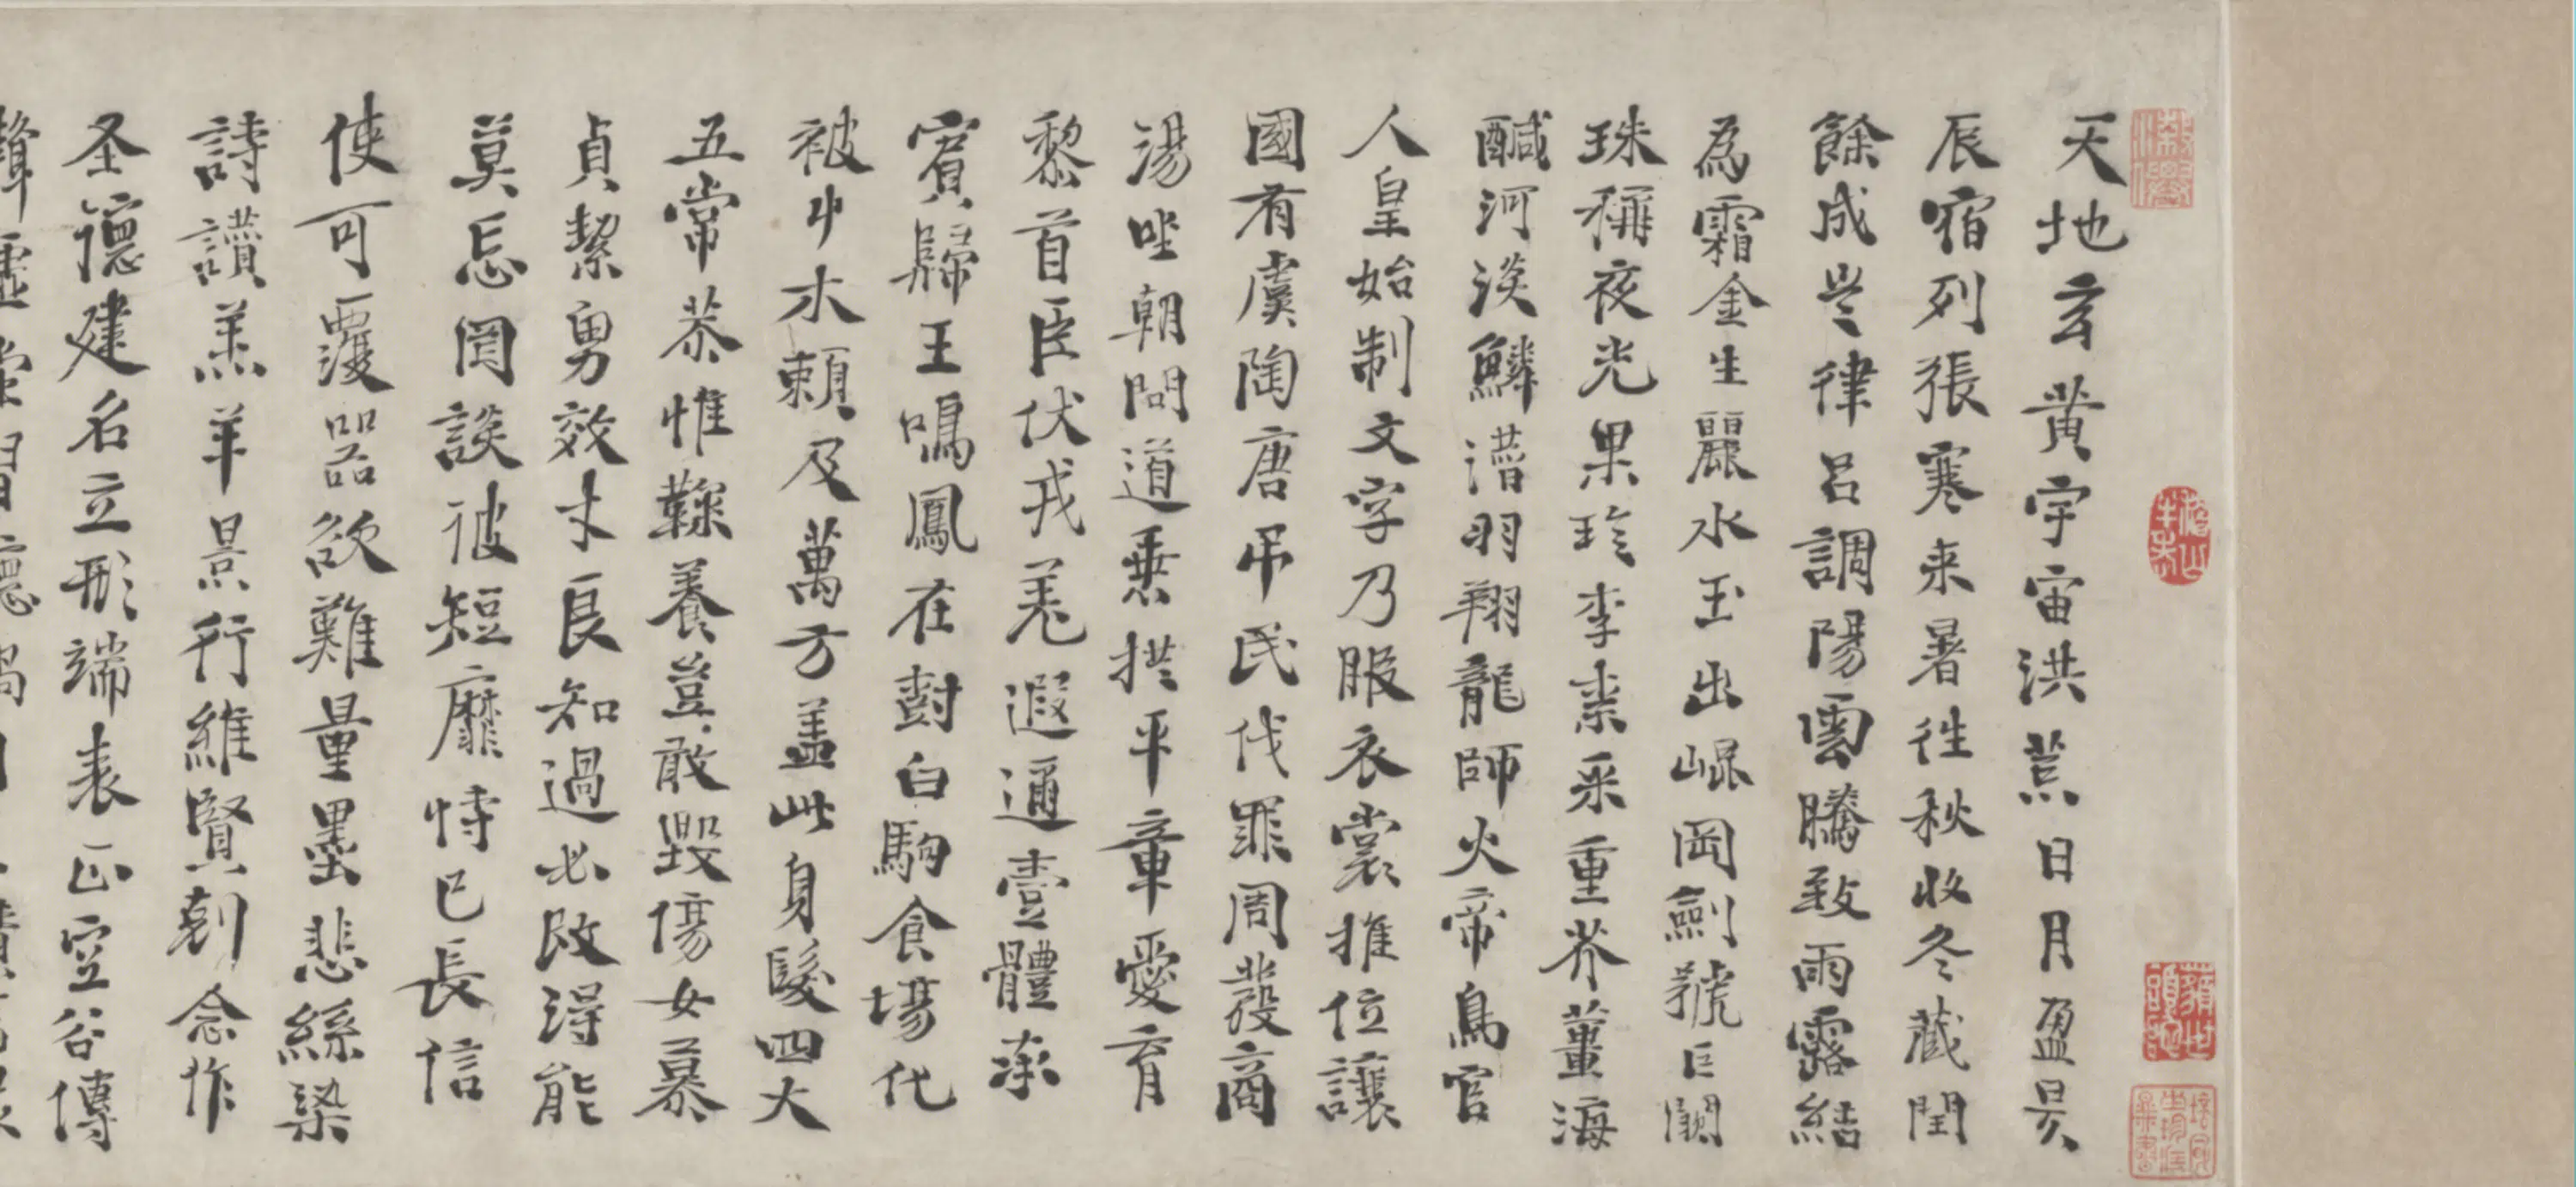 天地玄黄宇宙洪荒日月盈昃
辰宿列張寒来暑往秋收冬藏閏
餘成岁律吕調陽雲騰致雨露結
為霜金生麗水玉出崐岡劍號巨闕
珠稱夜光果珎李柰采重芥薑海
醎河淡鱗潛羽翔龍師火帝鳥官
人皇始制文字乃服衣裳推位讓
國有虞陶唐弔民伐罪周發商
湯坐朝問道垂拱平章愛育
黎首臣伏戎羌遐邇壹體率
賓歸王鳴鳳在樹白駒食場化
被草木賴及萬方盖此身髮四大
五常恭惟鞠養豈敢毀傷女慕
貞絜男效才良知過必改得能
莫忘罔談彼短靡恃己長信
使可覆器欲難量墨悲絲染
詩讚羔羊景行維賢剋念作
圣德建名立形端表正空谷傳
聲虛堂習聽禍因